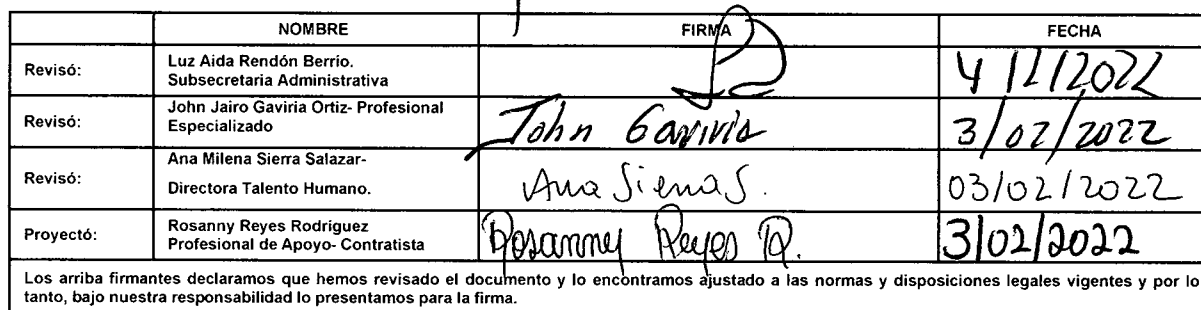 NOMBRE FIRMA FECHA
Revisó: Luz Aida Rendón Berrio.
Subsecretaria Administrativa
4/2/2022
Revisó: John Jairo Gaviria Ortiz- Profesional
Especializado
John Gaviria 3/02/2022
Revisó: Ana Milena Sierra Salazar-
Directora Talento Humano.
Ana Sierra S. 03/02/2022
Proyectó: Rosanny Reyes Rodríguez
Profesional de Apoyo- Contratista
Rosanny Reyes R. 3/02/2022
Los arriba firmantes declaramos que hemos revisado el documento y lo encontramos ajustado a las normas y disposiciones legales vigentes y por lo
tanto, bajo nuestra responsabilidad lo presentamos para la firma.